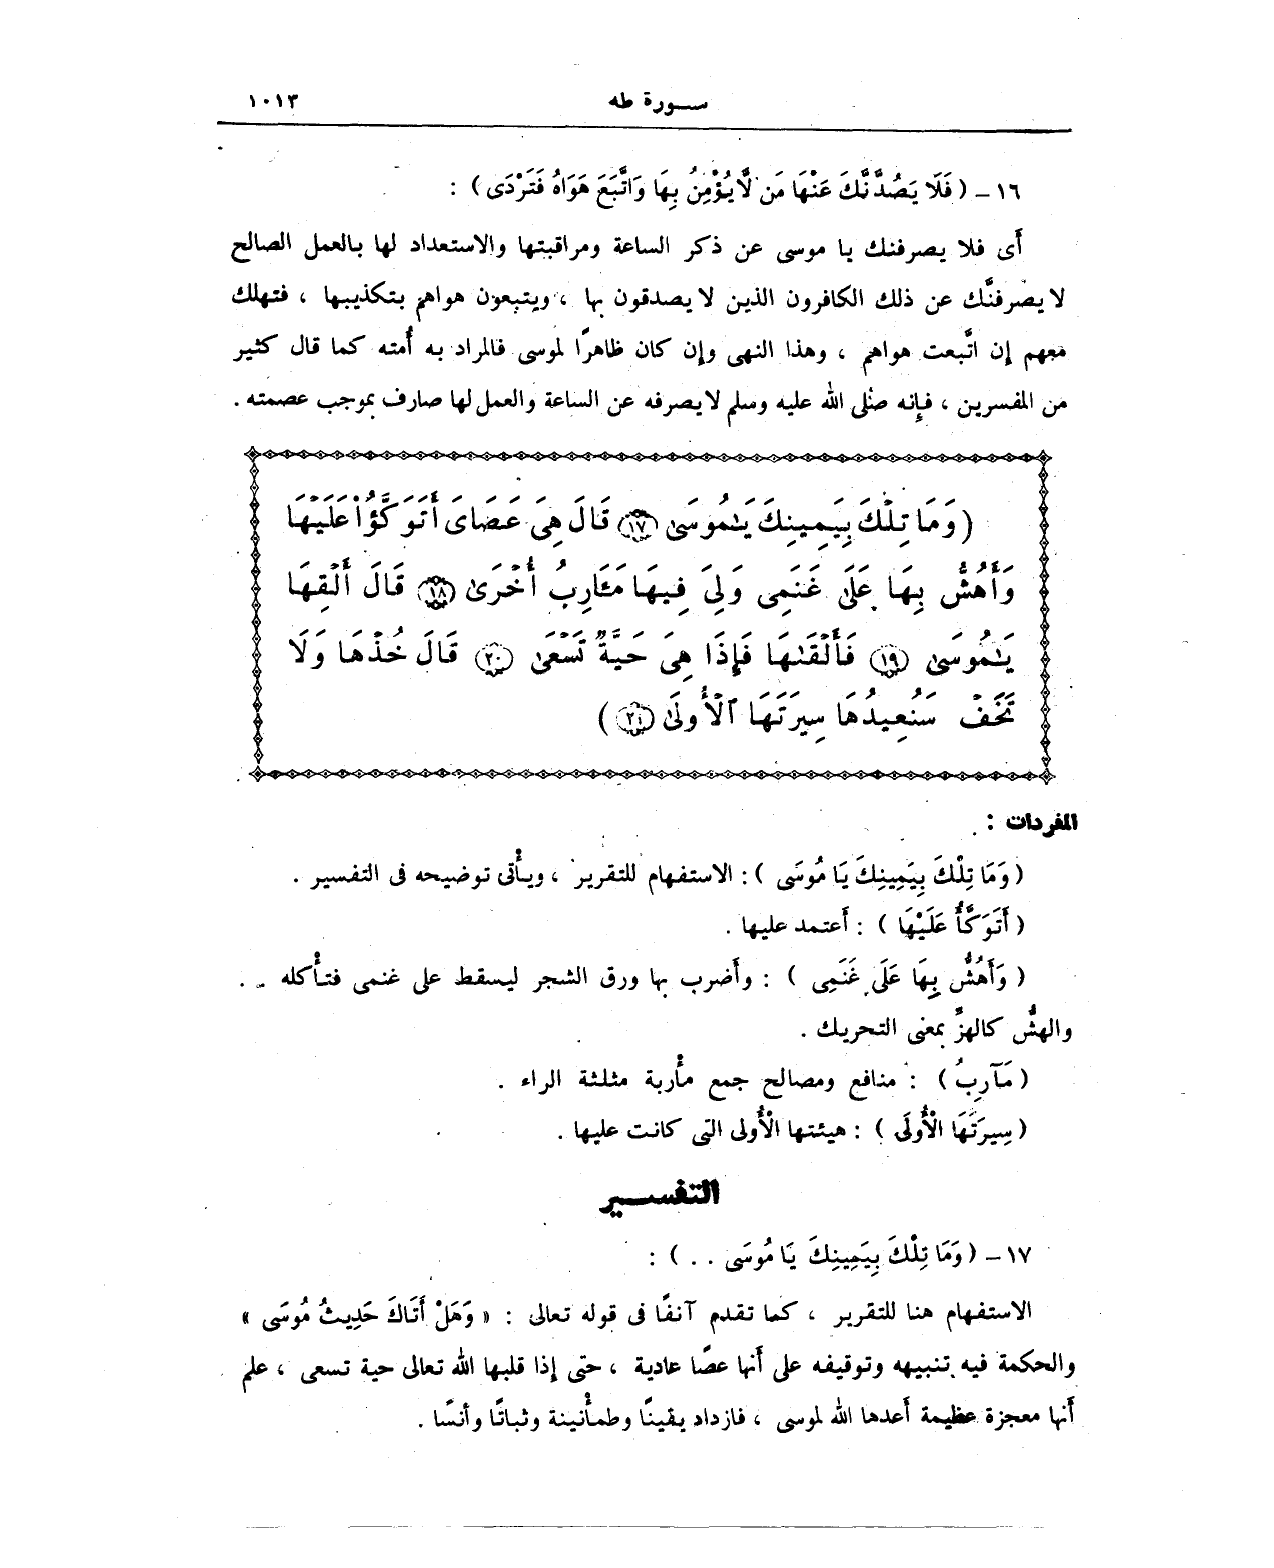 سورة طه ١٠١٣
١٦ – ( فَلَا يَصُدَّنَّكَ عَنْهَا مَن لَّا يُؤْمِنُ بِهَا وَاتَّبَعَ هَوَاهُ فَتَرْدَى ) :
أى فلا يصرفنك يا موسى عن ذكر الساعة ومراقبتها والاستعداد لها بالعمل الصالح
لا يصرفنَّك عن ذلك الكافرون الذين لا يصدقون بها ، ويتبعون هواهم بتكذيبها ، فتهلك
معهم إن اتَّبعت هواهم ، وهذا النهى وإن كان ظاهرًا لموسى فالمراد به أُمته كما قال كثير
من المفسرين ، فإنه صلى الله عليه وسلم لا يصرفه عن الساعة والعمل لها صارف بموجب عصمته .
( وَمَا تِلْكَ بِيَمِينِكَ يَٰمُوسَىٰ ١٧ قَالَ هِىَ عَصَاىَ أَتَوَكَّؤُاْ عَلَيْهَا
وَأَهُشُّ بِهَا عَلَىٰ غَنَمِى وَلِىَ فِيهَا مَـَٔارِبُ أُخْرَىٰ ١٨ قَالَ أَلْقِهَا
يَٰمُوسَىٰ ١٩ فَأَلْقَىٰهَا فَإِذَا هِىَ حَيَّةٌ تَسْعَىٰ ٢٠ قَالَ خُذْهَا وَلَا
تَخَفْ سَنُعِيدُهَا سِيرَتَهَا ٱلْأُولَىٰ ٢١ )
المفردات :
( وَمَا تِلْكَ بِيَمِينِكَ يَا مُوسَى ) : الاستفهام للتقرير ، ويأْتى توضيحه فى التفسير .
( أَتَوَكَّأُ عَلَيْهَا ) : أَعتمد عليها .
( وَأَهُشُّ بِهَا عَلَى غَنَمِى ) : وأَضرب بها ورق الشجر ليسقط على غنمى فتأْكله . .
والهشُّ كالهزِّ بمعنى التحريك .
( مَآرِبُ ) : منافع ومصالح جمع مأْربة مثلثة الراء .
( سِيرَتَهَا الْأُولَى ) : هيئتها الْأُولى التى كانت عليها .
التفسير
١٧ – ( وَمَا تِلْكَ بِيَمِينِكَ يَا مُوسَى . . ) :
الاستفهام هنا للتقرير ، كما تقدم آنفًا فى قوله تعالى : « وَهَلْ أَتَاكَ حَدِيثُ مُوسَى »
والحكمة فيه تنبيهه وتوقيفه على أَنها عصًا عادية ، حتى إذا قلبها الله تعالى حية تسعى ، علم
أَنها معجزة عظيمة أَعدها الله لموسى ، فازداد يقينًا وطمأْنينة وثباتًا وأُنسًا .